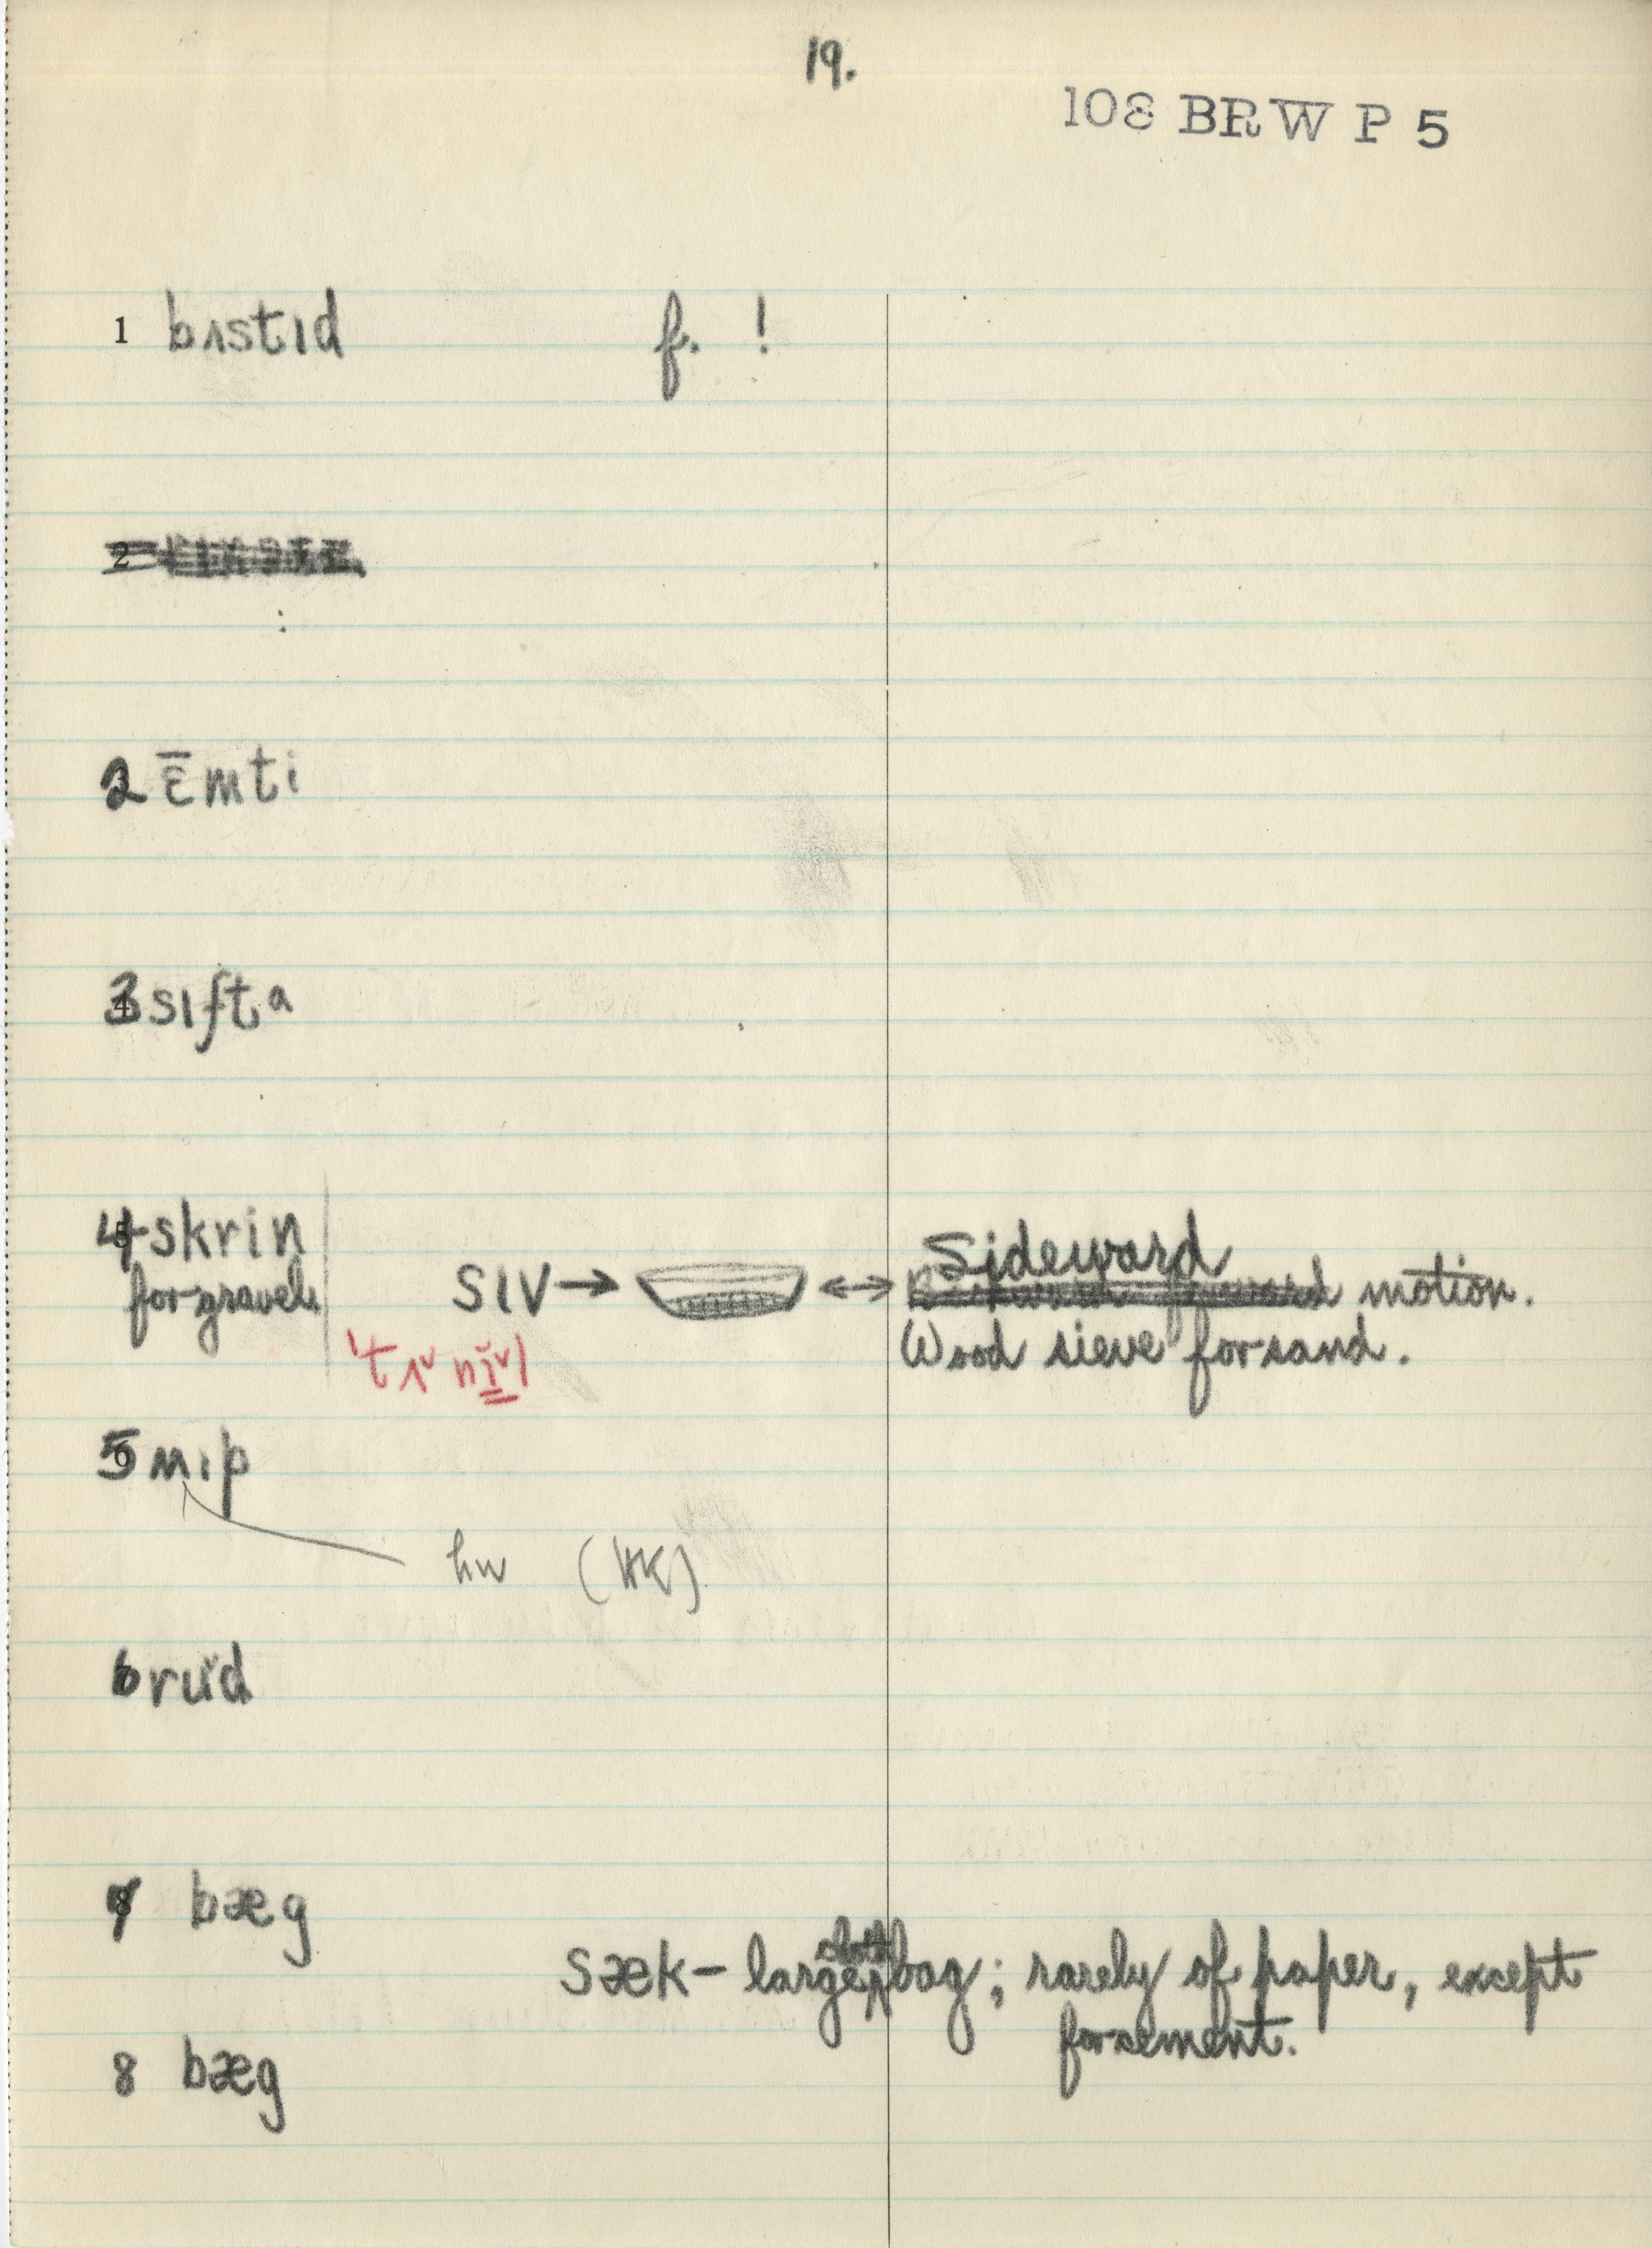 19.
108 BRW P 5
1 bʌstɪd f. !
2
2 ɛ̄mti
3 sɪftə
4 skrin
for gravel
sɪv → ↔ Sideward
motion.
Wood sieve for sand.
5
hw (HK)
6 rŭd
7 bæg
sæk – large cloth bag; rarely of paper, except
for cement.
8 bæg